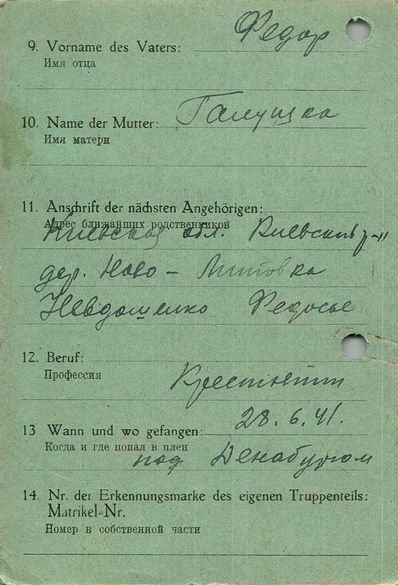 9. Vorname des Vaters: Федор
Имя отца
10. Name der Mutter: Галушка
Имя матери
11. Anschrift der nächsten Angehörigen:
Адрес ближайших родственников
Киевская обл. Киевский р-н
дер. Ново-
Невдошенко Федосье
12. Beruf:
Профессия
Крестьянин
13 Wann und wo gefangen: 28.6.41.
Когда и где попал в плен
под Денабургом
14. Nr. der Erkennungsmarke des eigenen Truppenteils:
Matrikel-Nr.
Номер в собственной части